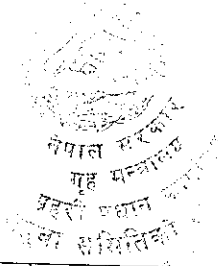 नेपाल सरकार
गृह मन्त्रालय
प्रहरी प्रधान
समितिको